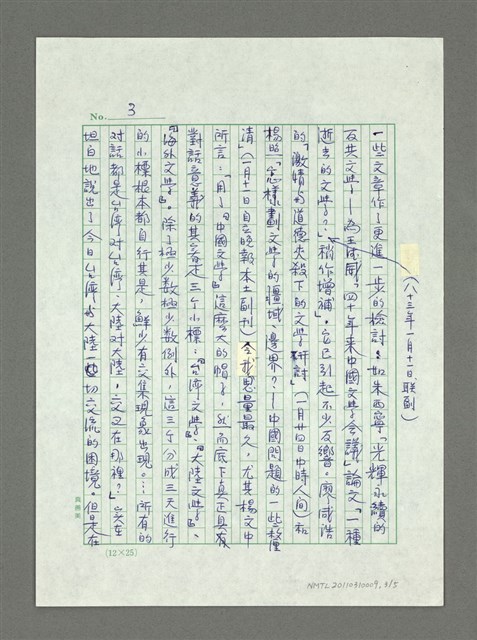 No. 3
一些文章作了更進一步的檢討。如朱西寧「光輝永續的
反共文學——為王德威『四十年來中國文學會議』論文『一種
逝去的文學?』稍作增補」。它已引起不少反響。廖咸浩
(八十三年一月十一日 聯副)
的「激情的道德夫殺下的文學研討」(一月廿四日中時人間)和
楊照「怎樣劃文學的疆域、邊界?——中國問題的一些釐
清」(一月十一日自立晚報本土副刊)令我思量最久,尤其楊文中
所言:「用了『中國文學』這麼大的帽子,然而底下真正具有
對話意義的其實是三個小標:『台灣文學』、『大陸文學』、
『海外文學』。除了極少數極少數例外,這三個分成三天進行
的小標根本都自行其是,鮮少有交集現象出現。…所有的
對話都是台灣對台灣、大陸對大陸,交又在那裡?」實在
坦白地說出了今日台灣與大陸一切交流的困境。但是在
(12×25)
NMTL20110310009, 3/5